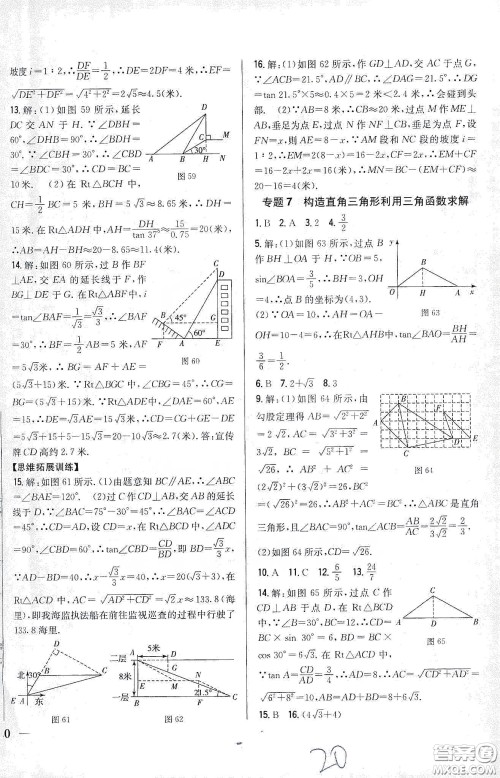 坡度 i=1∶2,∴DF/DE=1/2,∴DE=2DF=4 米,∴EF=
√(DE²+DF²)=√(4²+2²)=2√5≈4.5(米).
13.解:(1)如图 59 所示,延长
DC 交 AN 于 H.∵∠DBH=
60°,∠DHB=90°,∴∠BDH=
30°.∵∠CBH=30°,∴∠CBD
=∠BDC=30°,∴BC=CD=
10 米. (2)在 Rt△BCH 中,
CH=1/2BC=5 米,BH=5√3≈8.65 米,∴DH=
15 米.在 Rt△ADH 中,AH=DH/tan 37°≈15/0.75=20(米),
∴AB=AH−BH≈20−8.65≈11.4(米).
14.解:如图 60 所示,过 B 作 BF
⊥AE,交 EA 的延长线于 F,作
BG⊥DE 于 G.在 Rt△ABF 中,
i=tan∠BAF=BF/AF=1/√3=√3/3,
∴∠BAF=30°,∴BF=1/2AB=
5,AF=5√3.∴BG=AF+AE=
(5√3+15)米.在 Rt△BGC 中,∠CBG=45°,∴CG=
BG=(5√3+15)米.在 Rt△ADE 中,∠DAE=60°,AE
=15 米,∴DE=√3AE=15√3(米).∴CD=CG+GE
−DE=5√3+15+5−15√3=20−10√3≈2.7(米).答:宣传
牌 CD 高约 2.7 米.
【思维拓展训练】
15.解:如图 61 所示.(1)由题意知 BC∥AE,∴∠ACB=
∠BAE=120°. (2)过点 C 作 CD⊥AB,交 AB 的延长
线于点 D.∵∠BAC=75°−30°=45°,∴∠BAC=∠ACD
=45°,∴AD=CD,设 CD=x,在 Rt△BCD 中,∠CBD
=30°+30°=60°,∴tan∠CBD=CD/BD,即 BD=√3/3x,
∵AD−BD=40,∴x−√3/3x=40,∴x=20(√3+3),在
Rt△ACD 中,AC=√(AD²+CD²)=√2x≈133.8(海
里),即我海监执法船在前往监视巡查的过程中行驶了
133.8 海里.
16.解:(1)如图 62 所示,作 GD⊥AD,交 AC 于点 G,
∵∠ACB=21.5°,AD∥BC,∴∠DAG=21.5°,∴DG=
tan 21.5°×5≈0.4×5=2(米),∵2>1.9,∴会碰到头
部. (2)∵BC=AB/0.4=8/0.4=20 米,过点 M 作 ME⊥
AB,垂足为点 E,过点 N 作 NF⊥BC,垂足为点 F,设
FN=x,则 AE=8−x,∵AM 段和 NC 段的坡度 i=
1∶2,∴EM=2(8−x)=16−2x,CF=2x,∴EM+CF
=16−2x+2x=16(米),∴MN=BC−(EM+CF)≈
20−16=4(米).
专题 7 构造直角三角形利用三角函数求解
1.B 2.A 3.2 4.3/2
5.解:(1)如图 63 所示,过点 B
作 BH⊥OA 于 H,∵OB=5,
sin∠BOA=3/5,∴BH=3,OH
=4,∴点 B 的坐标为(4,3).
(2)∵OA=10,∴AH=OA−
OH=10−4=6,∴在 Rt△AHB 中,tan∠BAO=BH/AH=
3/6=1/2.
6.B 7.2+√3 8.3
9.解:(1)如图 64 所示,由
勾股定理得 AB=√(2²+2²)
=2√2,CD=√(2²+3²)=
√13,EF=√(1²+2²)=√5.
(2)如图 64 所示,∵AC=
√(3²+3²)=3√2,BC=√(1²+5²)=√26,(2√2)²+(3√2)²
=(√26)²=26,∴AB²+AC²=BC²,∴△ABC 是直角
三角形,且∠BAC=90°,∴tan∠ACB=AB/AC=2√2/3√2=2/3.
10.A 11.C 12.6/5 13.24/7
14.解:如图 65 所示,过点 C 作
CD⊥AB 于点 D,∵∠B=
30°,BC=12,∴CD=BC
×sin 30°=6,BD=BC×
cos 30°=6√3,∵tan A=CD/AD=3/4,∴AC=√(CD²+AD²)
=10,∴AB=AD+BD=8+6√3.
15.B 16.(4√3+4)
图 59
图 60
图 61
图 62
图 63
图 64
图 65
20